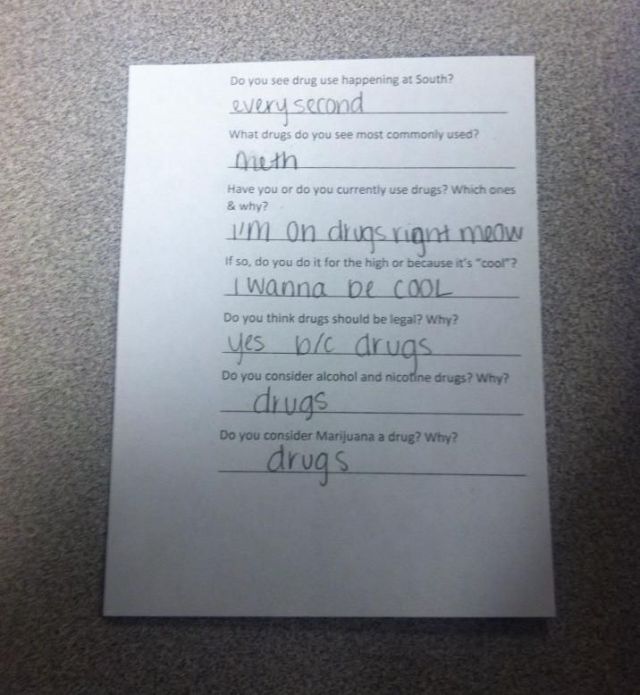 Do you see drug use happening at South?
every second
What drugs do you see most commonly used?
Meth
Have you or do you currently use drugs? Which ones
& why?
I'm on drugs right meow
If so, do you do it for the high or because it's "cool"?
I wanna be COOL
Do you think drugs should be legal? Why?
yes b/c drugs
Do you consider alcohol and nicotine drugs? Why?
drugs
Do you consider Marijuana a drug? Why?
drugs